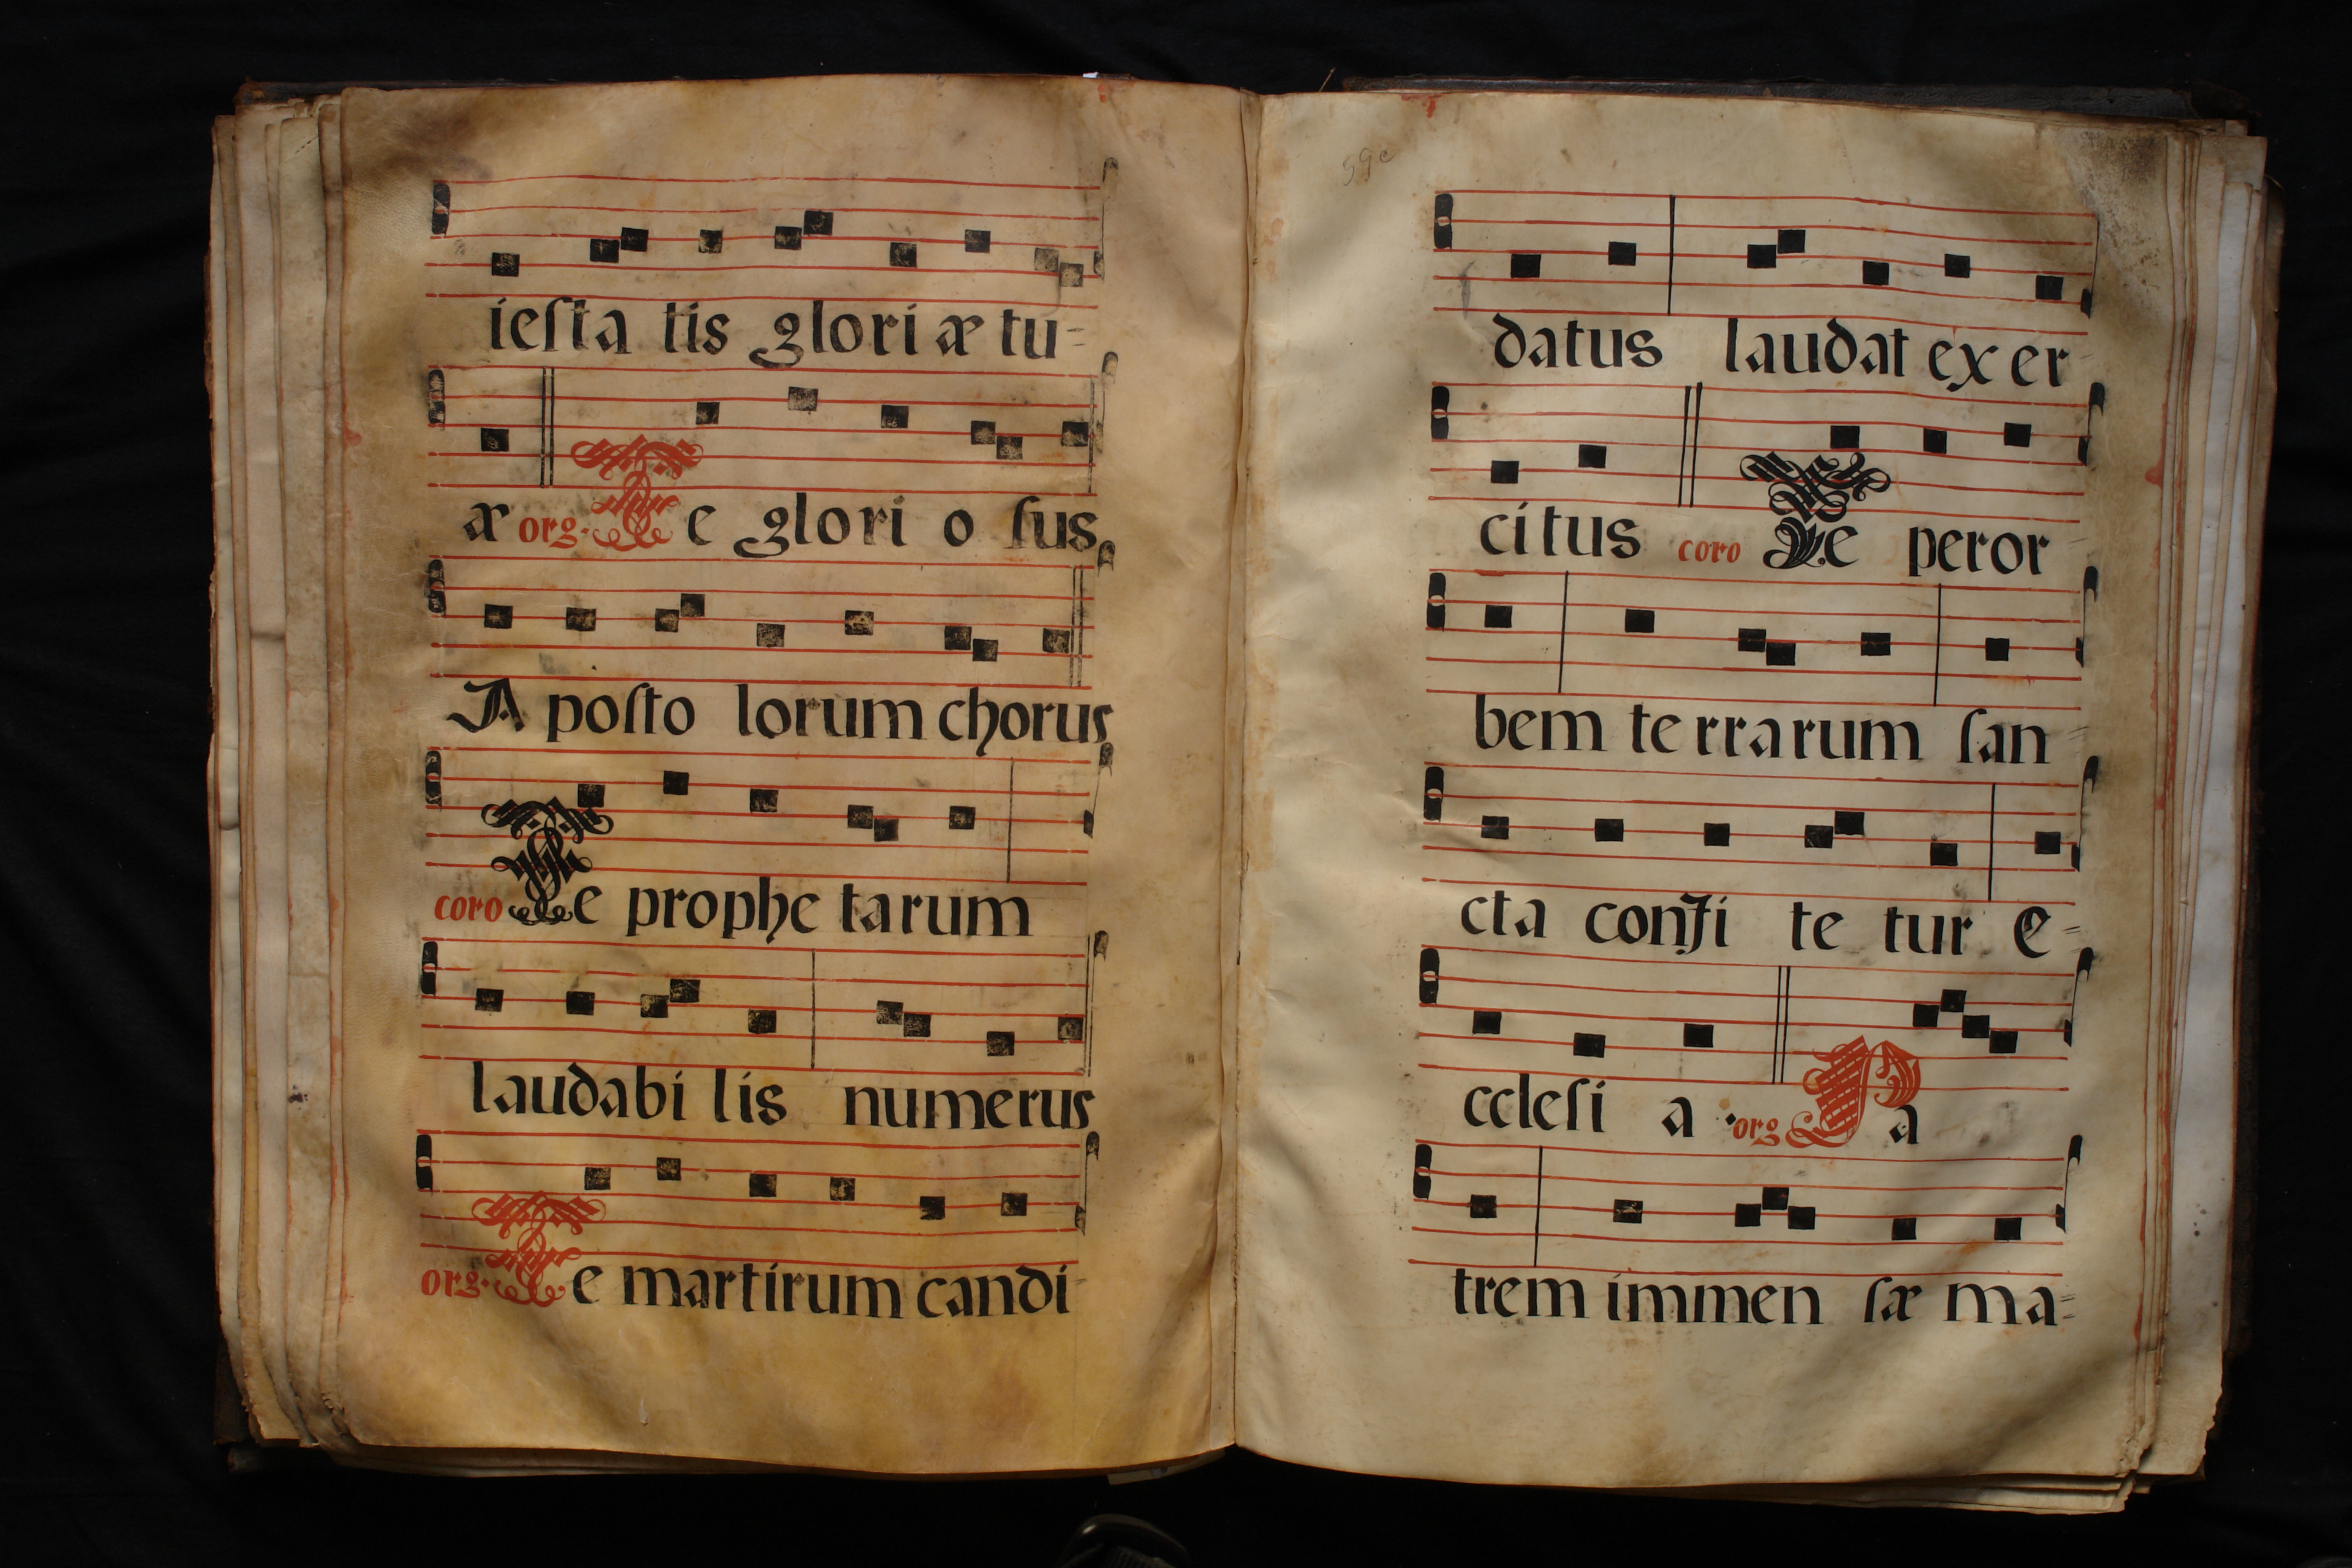 ieſta tis gloriæ tu=
æ org. Te glori o ſus
A poſto lorum chorus
coro Te prophe tarum
laudabi lis numerus
org. Te martirum candi-
59c
datus laudat exer-
citus coro Te peror
bem te rrarum ſan
cta confi te tur e=
ccleſi a org Pa
trem immen ſæ ma=